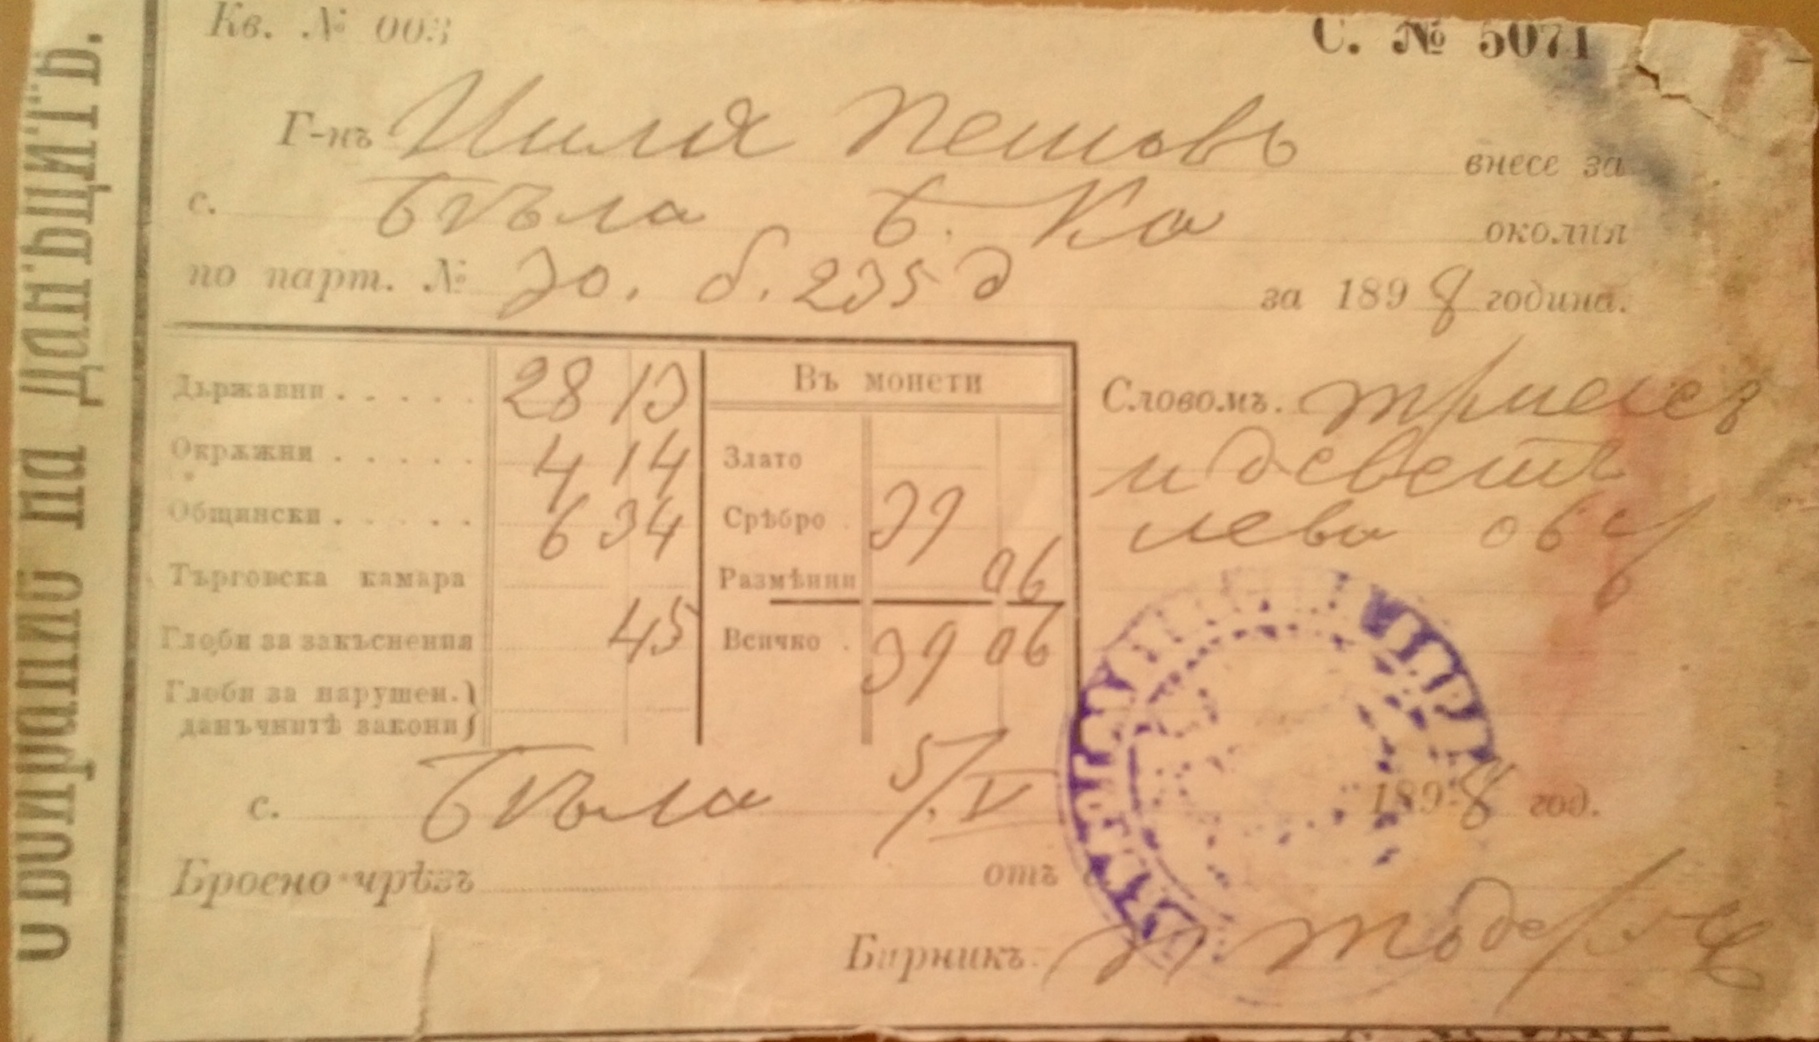 Събирание на данъцитѣ.
Кв. № 003
С. № 5071
Г-нъ Илия Пешовъ внесе за
с. Бѣла околия
по парт. № 30. б. 235 за 1898 година.
Държавни . . . . . 28 13
Окрѫжни . . . . . 4 14
Общински . . . . . 6 34
Търговска камара
Глоби за закъснения 45
Глоби за нарушен.
данъчнитѣ закони
Въ монети
Злато
Срѣбро . 39
Размѣнни 06
Всичко . 39 06
Словомъ.
и деветь
лева 06
с. Бѣла 5/V 1898 год.
Бросно чрѣзъ отъ
Бирникъ: